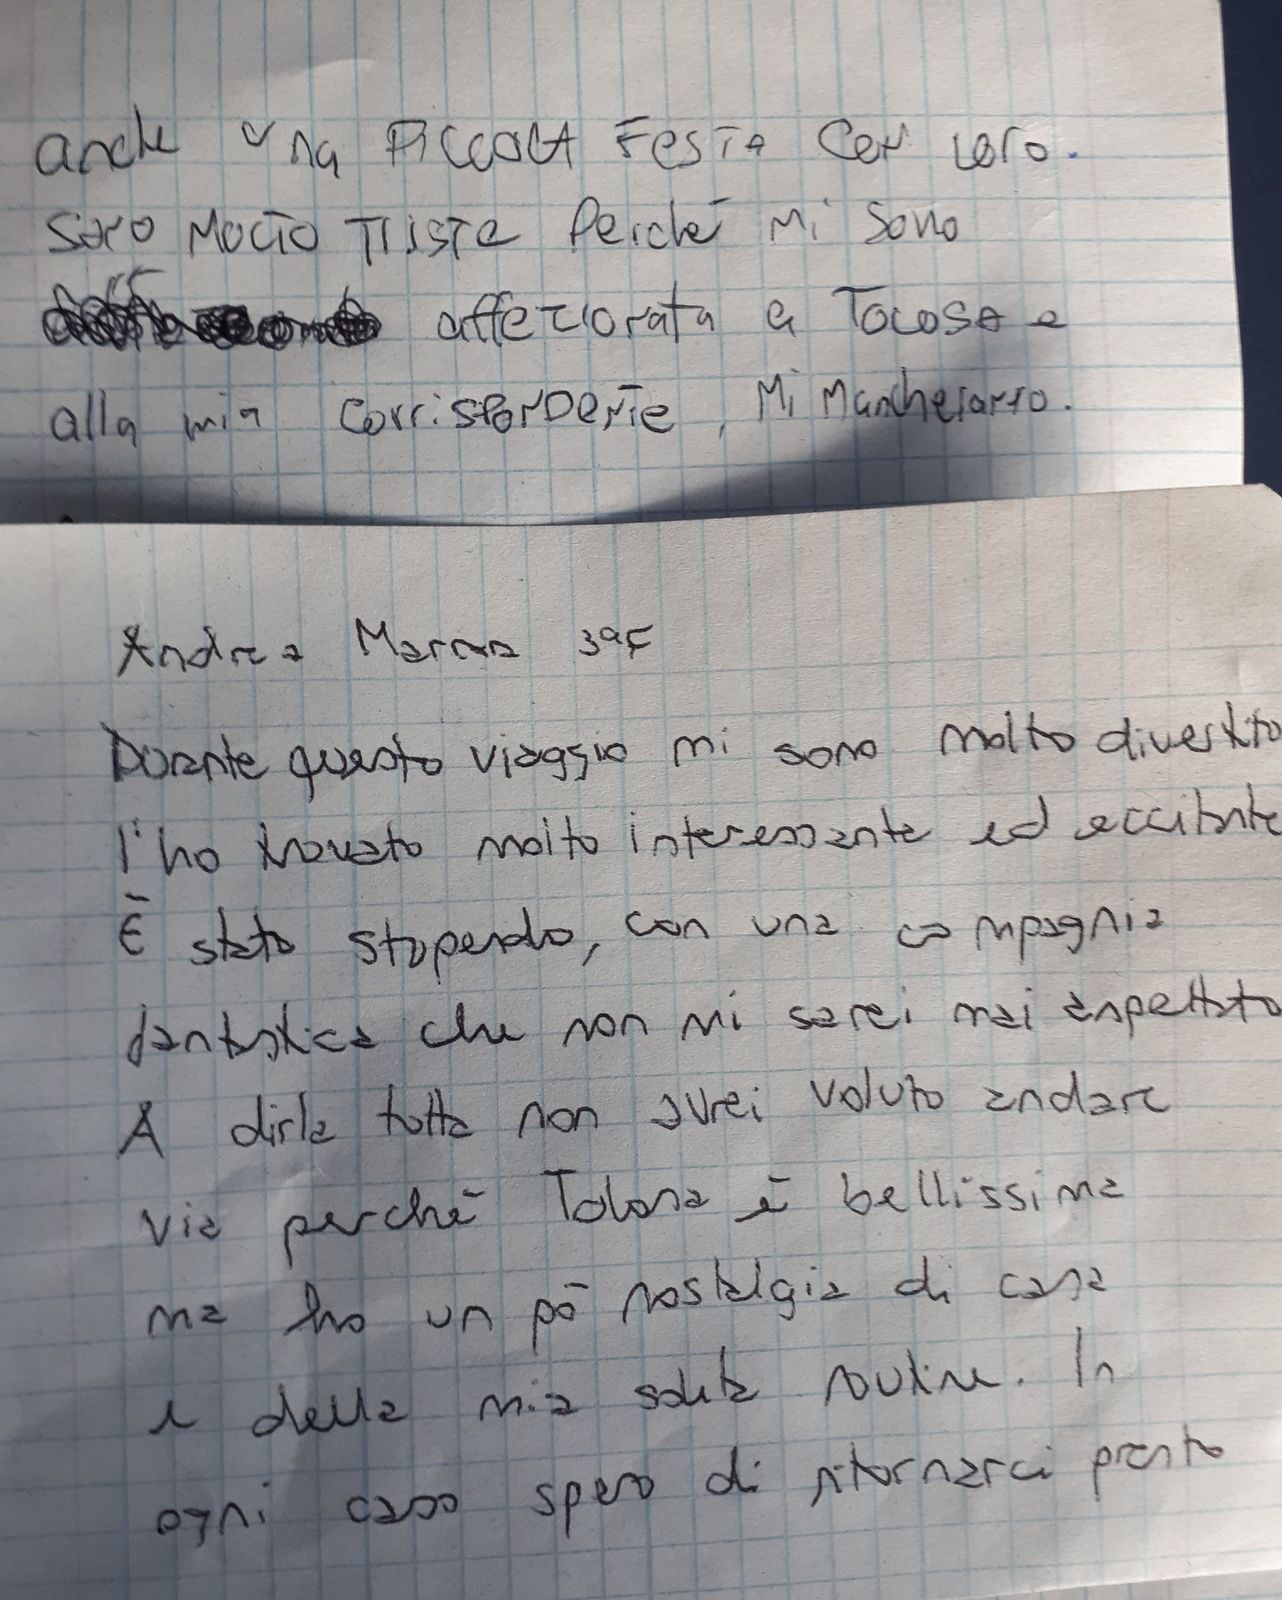 anche una PiccolA FESTA Con loro.
sarò Molto TrisTe Perché mi sono
affezionata a Tolosa e
alla mia corrispondente, Mi Mancheranno.
Andrea 3ªF
Durante questo viaggio mi sono molto divertito
l'ho trovato molto interessante ed eccitante
É stato stupendo, con una compagnia
fantastica che non mi sarei mai aspettato
A dirla tutta non avrei voluto andare
via perché Tolosa è bellissima
ma ho un pò nostalgia di casa
e della mia solita routine. In
ogni caso spero di ritornarci presto